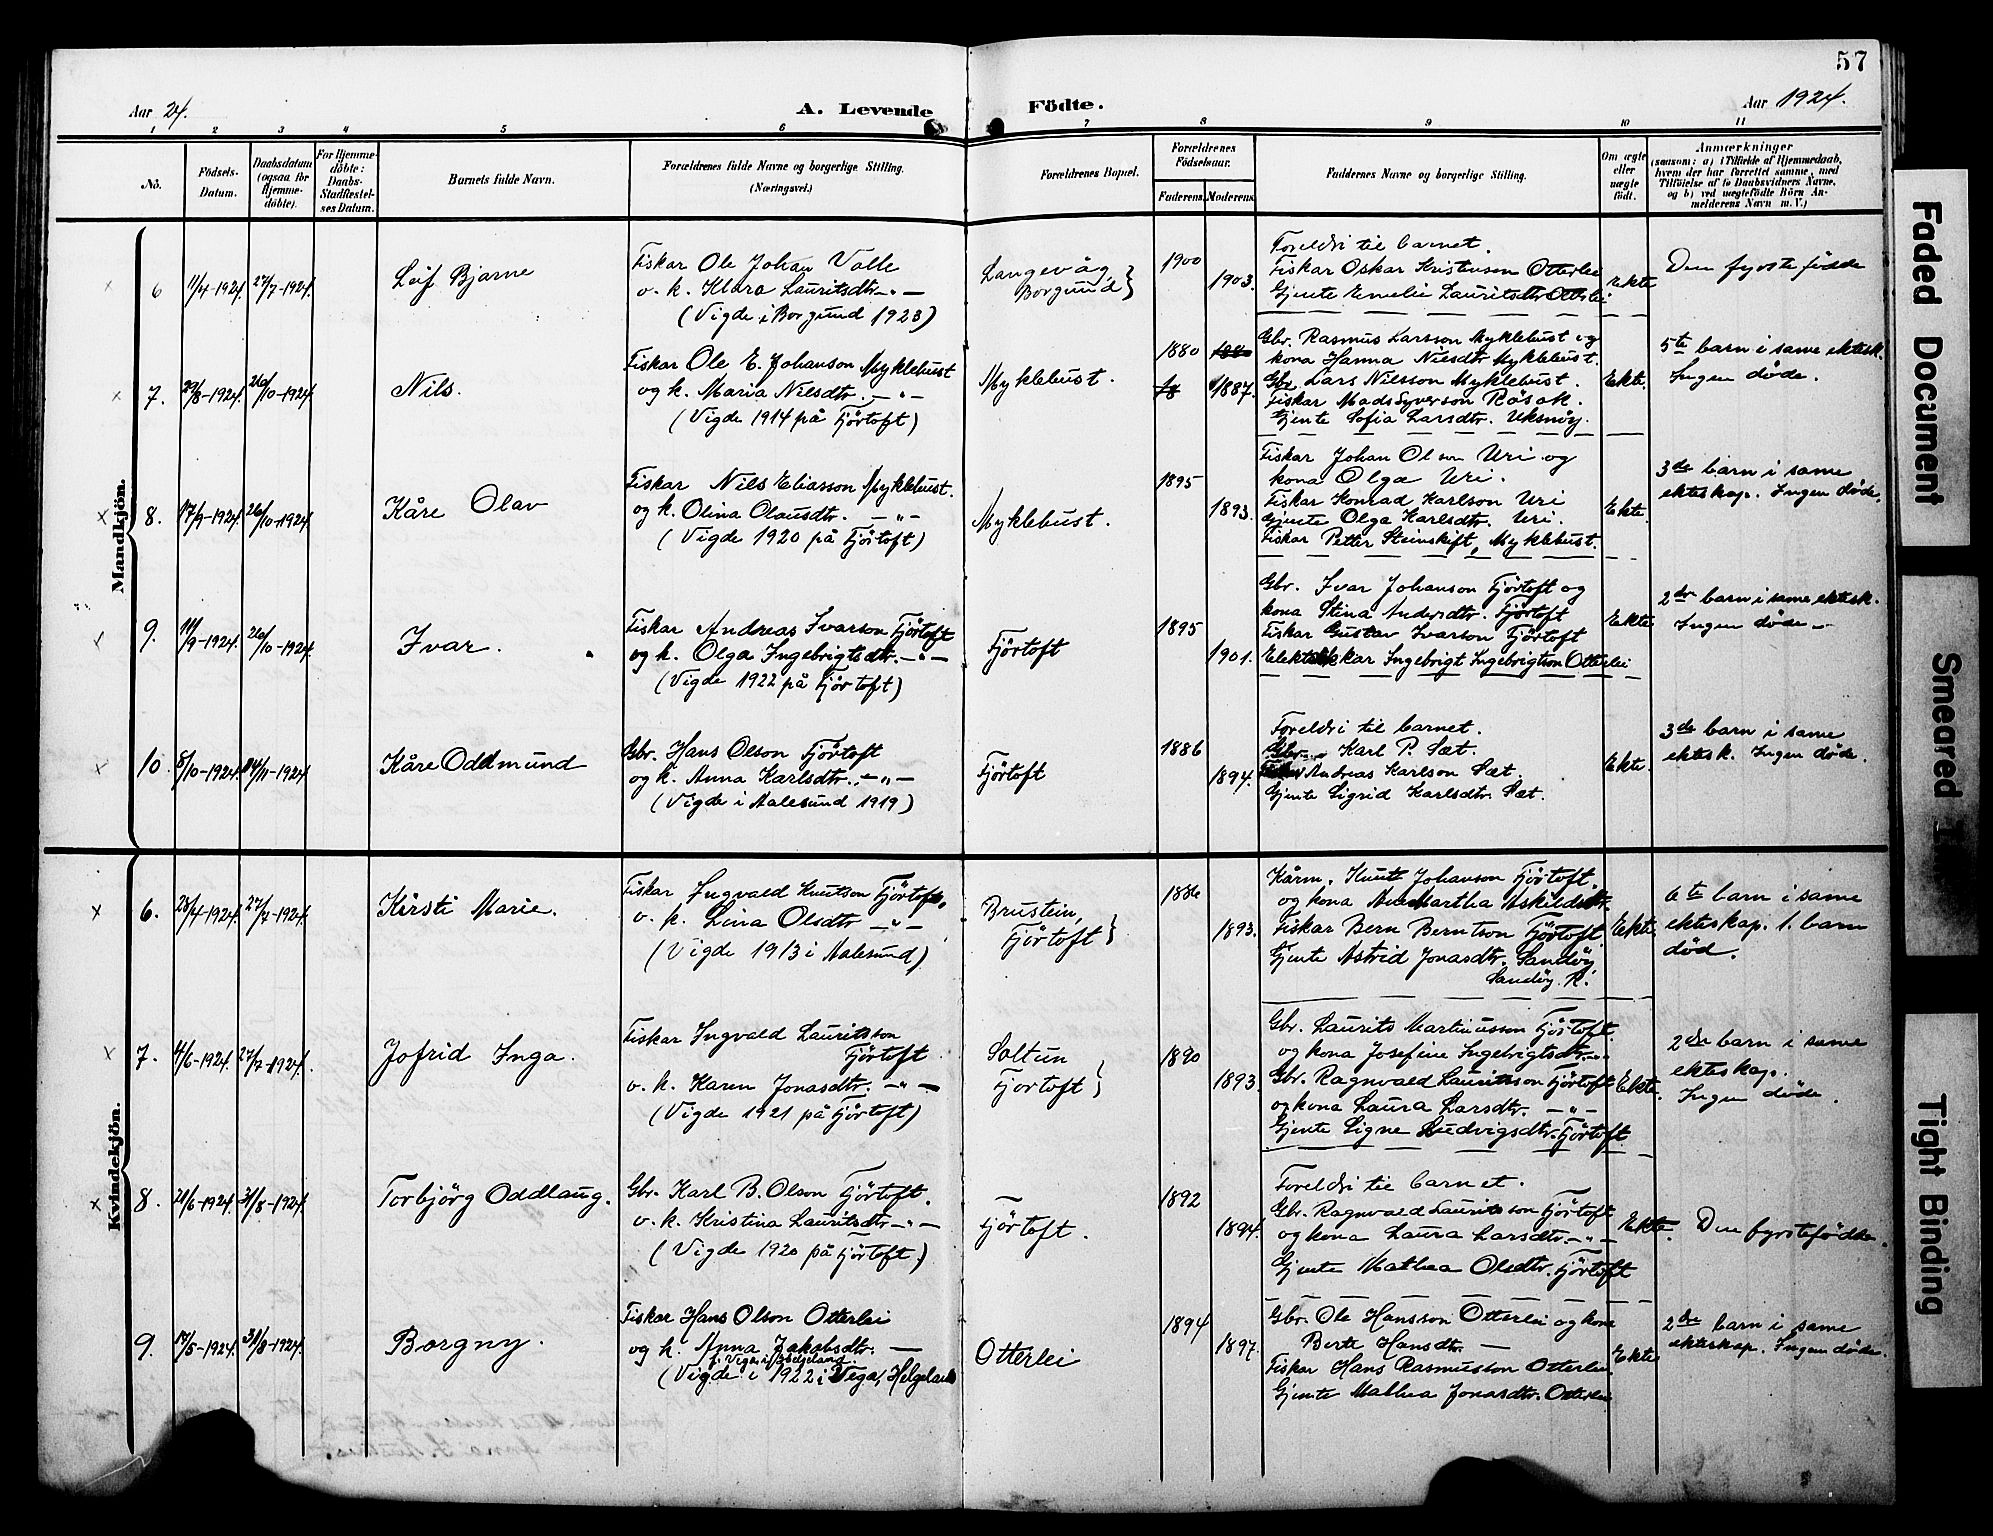 57
Aar 24.
A. Levende Födte.
Aar 1924.
1 2 3 4 5 6 7 8 9 10 11
No.
Födsels-Datum.
Daabsdatum (ogsaa for Hjemme-döbte).
For Hjemme-döbte: Daabs-Stadfestel-ses Datum.
Barnets fulde Navn.
Forældrenes fulde Navne og borgerlige Stilling. (Næringsvei.)
Forældrenes Bopæl.
Forældrenes Födselsaar.
Faderens. Moderens.
Faddernes Navne og borgerlige Stilling.
Om ægte eller uægte födt.
Anmærkninger
(saasom: a) i Tilfælde af Hjemmedaab,
hvem der har forrettet samme, med
Tilföielse af to Daabsvidners Navne,
og b) ved uægtefödte Börn An-
melderens Navn m. V.)
Mandkjön.
6 11/4-1924. 27/7-1924. Leif Bjarne
Fiskar Ole Johan Valle
o. k. Klara Lauritsdtr. -"-
(Vigde i Borgund 1923)
Langevåg, Borgund}
1900 1903.
Foreldri til barnet.
Fiskar Oskar Kristensen Otterlei
Gjente Emelie Lauritsdtr Otterlei
Ekte
Den fyrste födde
7. 29/8-1924. 26/10-1924. Nils.
Fiskar Ole E. Johanson Myklebust
og k. Maria Nilsdtr. -"-
(Vigde 1914 på Fjörtoft)
Myklebust.
1880 1887.
Gbr. Rasmus Larsson Myklebust og
kona Hanna Nilsdtr Myklebust.
Gbr. Lars Nilsson Myklebust.
Fiskar Mads Syverson Rösok.
Gjente Sofia Larsdtr. Uksnöy.
Ekte.
5te barn i same ektesk.
Ingen döde.
8. 17/9-1924. 26/10-1924 Kåre Olav
Fiskar Nils Eliasson Myklebust.
og k. Olina Olausdtr. -"-
(Vigde 1920 på Fjörtoft)
Myklebust.
1895 1893.
Fiskar Johan Olson Uri og
kona Olga Uri.
Fiskar Konrad Karlson Uri
Gjente Olga Karlsdtr. Uri.
Fiskar Petter Steinskift, Myklebust.
Ekte.
3de barn i same
ekteskap. Ingen döde.
9. 11/9-1924. 26/10-1924 Ivar.
Fiskar Andreas Ivarson Fjörtoft
og k. Olga Ingebrigtsdtr. -"-
(Vigde 1922 på Fjörtoft)
Fjörtoft
1895 1901.
Gbr. Ivar Johanson Fjörtoft og
kona Stina Andersdtr. Fjörtoft
Fiskar Gustav Ivarson Fjörtoft
Ingebrigt Ingebrigtson Otterlei
Ekte
2dre barn i same ektesk.
Ingen döde -
10. 8/10-1924. 4/11-1924 Kåre Oddmund
Gbr. Hans Olson Fjörtoft
og k. Anna Karlsdtr. -"-
(Vigde i Aalesund 1919)
Fjörtoft
1886 1894.
Foreldri til barnet.
Gbr. Karl P. Sæt.
Andreas Karlson Sæt.
Gjente Sigrid Karlsdtr. Sæt.
Ekte.
3de barn i same
ektesk. Ingen döde.
Kvindekjön.
6. 28/4-1924. 27/7-1924. Kirsti Marie.
Fiskar Ingvald Knutson Fjörtoft,
o. k. Lina Olsdtr -"-
(Vigde 1913 i Aalesund)
Brustein, Fjörtoft}
1886 1893.
Knut Johanson Fjörtoft.
og kona Ane Martha Askildsdtr.
Fiskar Bern Berntson Fjörtoft
Gjente Astrid Jonasdtr. Sandöy
Sandöy. K.
Ekte.
6te barn i same
ekteskap. 1. barn
död.
7. 4/6-1924. 27/7-1924. Jofrid Inga.
Fiskar Ingvald Lauritsson
Fjörtoft
o. k. Karen Jonasdtr. -"-
(Vigde 1921 på Fjörtoft)
Saltun Fjortoft}
1890 1893.
Gbr. Laurits Martinusson Fjörtoft.
og kona Josefine Ingebrigtsdtr. -"-
Gbr. Ragnvald Lauritsson Fjörtoft
og kona Laura Larsdtr. -"-
Gjente Signe Ludvigsdtr. Fjörtoft
Ekte.
2dre barn i same
ekteskap.
Ingen döde.
8. 21/6-1924. 31/8-1924. Torbjörg Oddlaug.
Gbr. Karl B. Olson Fjörtoft.
o. k. Kristina Lauritsdtr -"-
(Vigde 1920 på Fjörtoft.)
Fjörtoft.
1892 1894.
Foreldri til barnet.
Gbr. Ragnvald Lauritsson Fjörtoft
og kona Laura Larsdtr. -"-
Gjente Mathea Olsdtr. Fjörtoft
Ekte.
Den fyrstefödde.
9. 19/5-1924. 31/8-1924. Borgny.
Fiskar Hans Olson Otterlei
og k. Anna Jakobsdtr. -
f. Vega i Helgeland
(Vigde i 1922 i Vega, Helgeland
Otterlei
1894 1897.
Gbr. Ole Hansson Otterlei og kona
Berte Hansdtr. -
Fiskar Hans Rasmusson Otterlei
Gjente Mathea Jonasdtr. Otterlei
Ekte
2dre barn i same
ekteskap. Ingen döde.
Faded Document
Smeared
Tight Binding